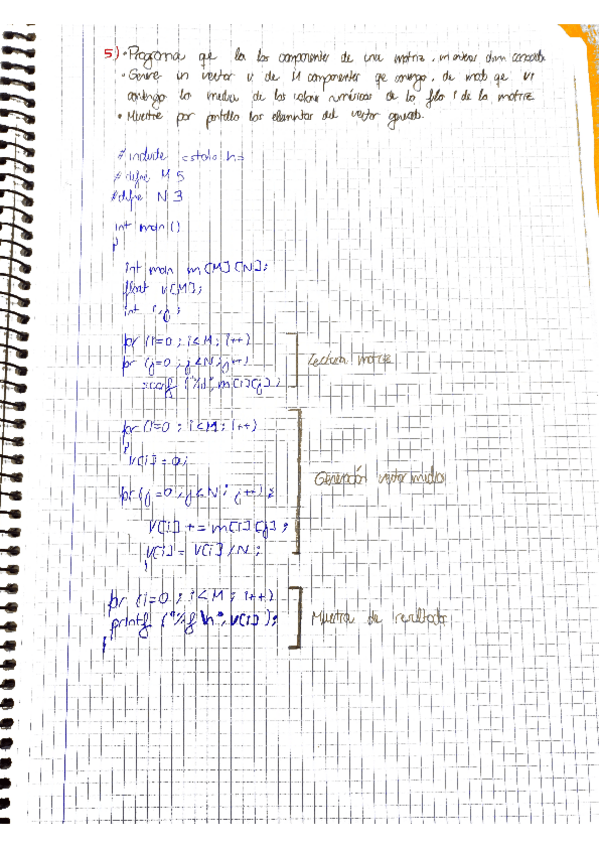 5) • Programa que lea los componentes de una matriz, m enteros dim conocida
• Genere un vector v de M componentes que contenga, de modo que vi
contenga la media de los valores numéricos de la fila i de la matriz
• Muestre por pantalla los elementos del vector generado.
#include <stdio.h>
#define M 5
#define N 3
int main()
{
int m[M][N];
float v[M];
int i,j;
for (i=0; i<M; i++)
for (j=0; j<N; j++)
scanf ("%d", m[i][j])
Lectura matriz
for (i=0; i<M; i++)
{
v[i]=0;
for (j=0; j<N; j++)
v[i] += m[i][j];
v[i] = v[i]/N;
}
Generación vector medias
for (i=0; i<M; i++)
printf ("%f\n", v[i]);
}
Muestra de resultado